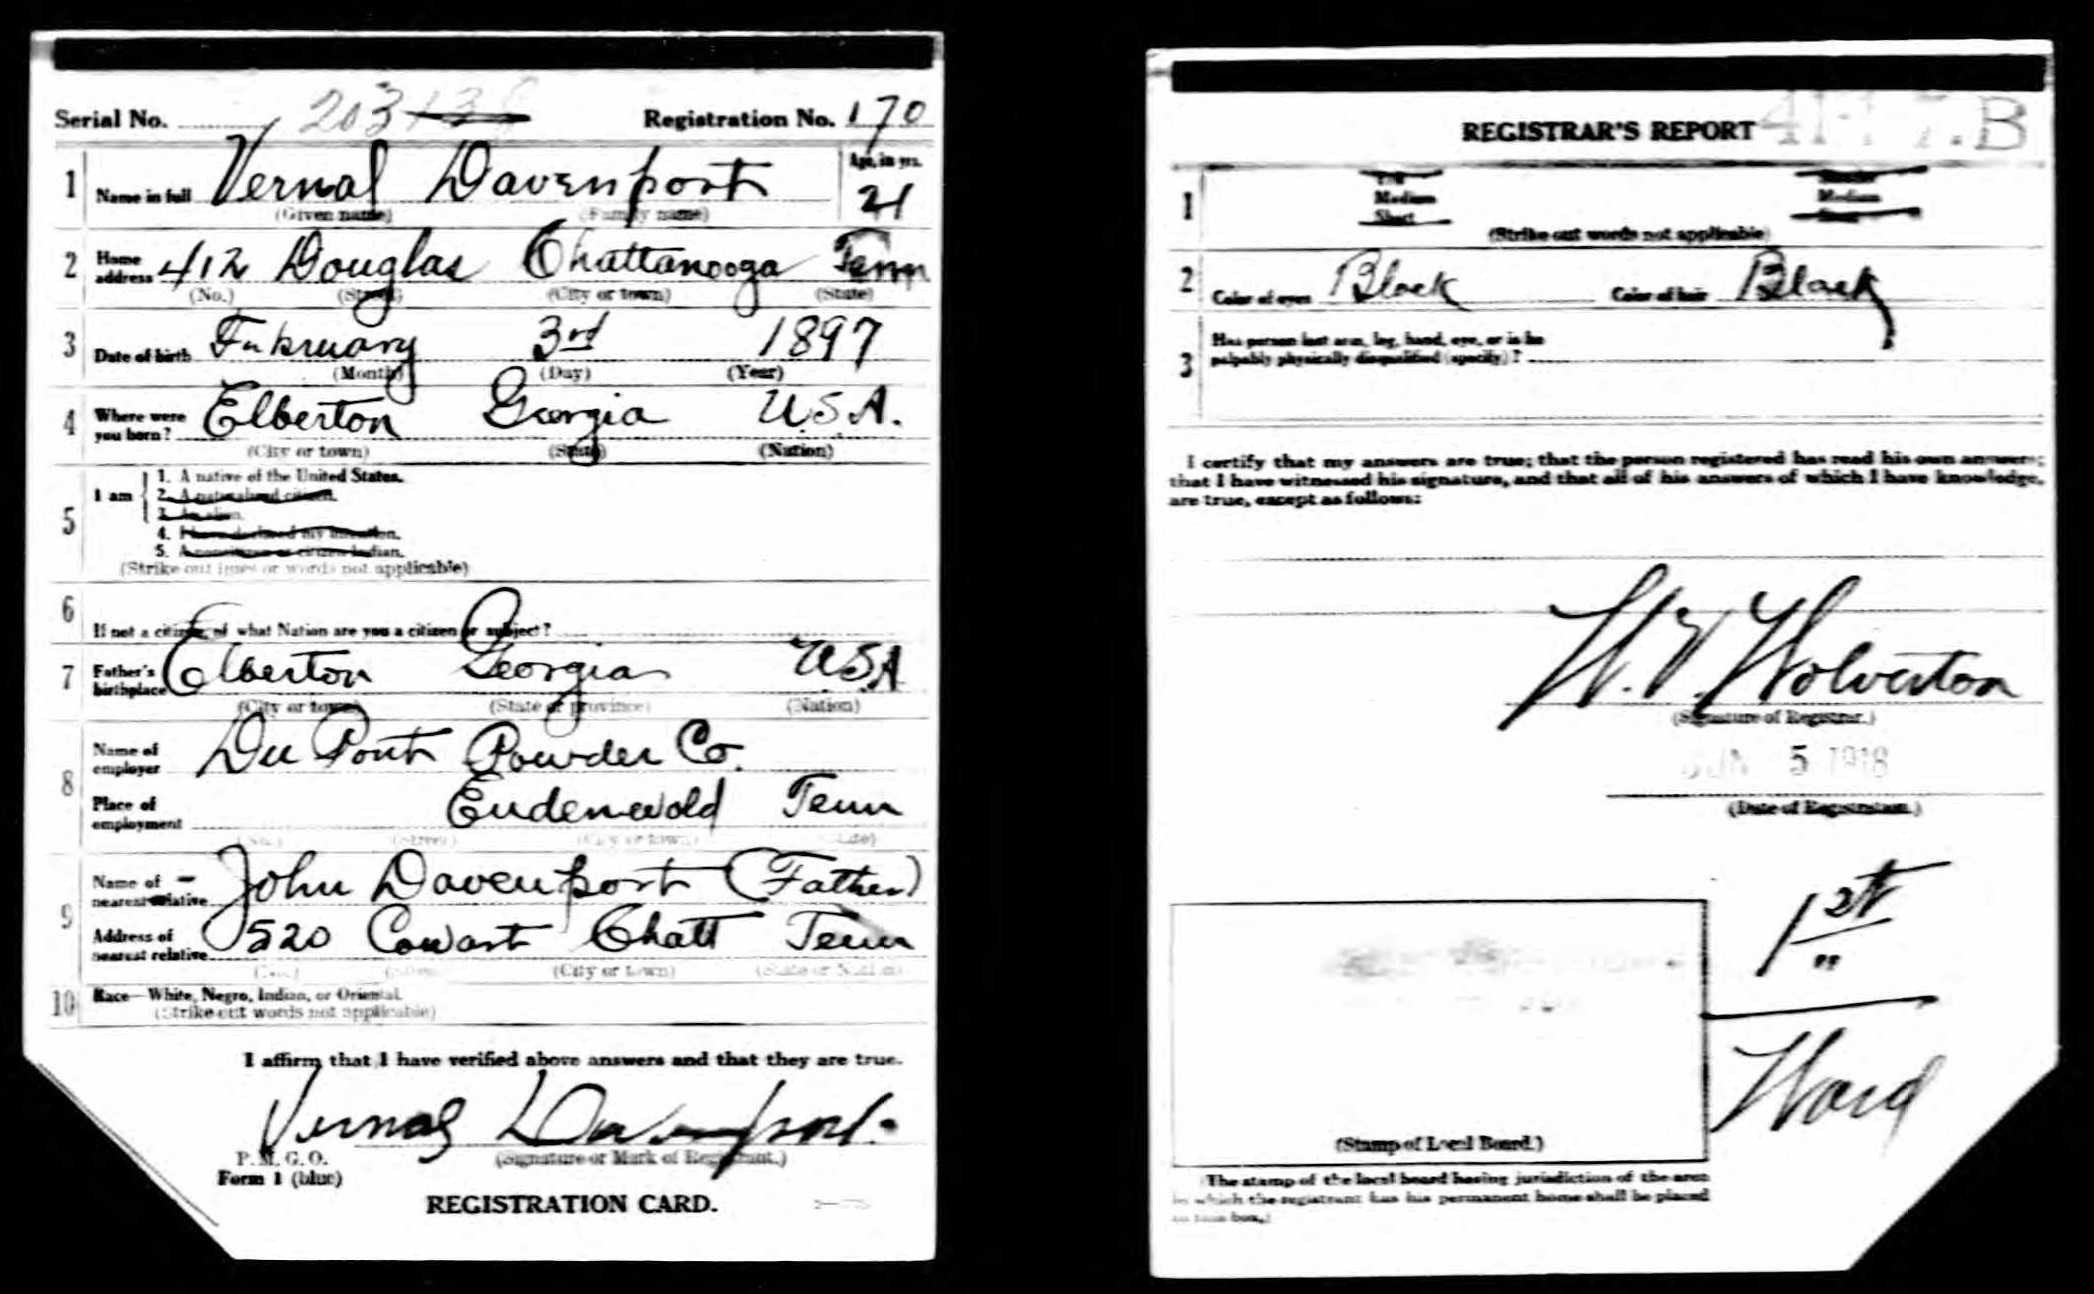 Serial No. 203 138 Registration No. 170
1 Name in full Vernal Davenport Age, in yrs. 21
(Given name) (Family name)
2 Home address 412 Douglas Chattanooga Tenn
(No.) (Street) (City or town) (State)
3 Date of birth February 3rd 1897
(Month) (Day) (Year)
4 Where were you born? Elberton Georgia U.S.A.
(City or town) (State) (Nation)
5 I am
1. A native of the United States.
2. A naturalized citizen.
3. An alien.
4. I have declared my intention.
5. A noncitizen or citizen Indian.
(Strike out lines or words not applicable)
6 If not a citizen, of what Nation are you a citizen or subject?
7 Father's birthplace Elberton Georgia U.S.A
(City or town) (State or province) (Nation)
8 Name of employer Du Pont Powder Co.
Place of employment Eudenwold Tenn
(No.) (Street) (City or town) (State)
9 Name of nearest relative John Davenport (Father)
Address of nearest relative 520 Cowart Chatt Tenn
(No.) (Street) (City or town) (State or Nation)
10 Race—White, Negro, Indian, or Oriental.
(Strike out words not applicable)
I affirm that I have verified above answers and that they are true.
Vernal Davenport.
P. M. G. O.
Form 1 (blue)
(Signature or Mark of Registrant.)
REGISTRATION CARD.
REGISTRAR'S REPORT
1 Tall Medium Short Medium
(Strike out words not applicable)
2 Color of eyes Black Color of hair Black
3 Has person lost arm, leg, hand, eye, or is he
palpably physically disqualified (specify)?
I certify that my answers are true; that the person registered has read his own answers;
that I have witnessed his signature, and that all of his answers of which I have knowledge,
are true, except as follows:
W. V. Wolverton
(Signature of Registrar.)
JUN 5 1918
(Date of Registration.)
1st
Ward
(Stamp of Local Board.)
(The stamp of the local board having jurisdiction of the area
in which the registrant has his permanent home shall be placed
in this box.)